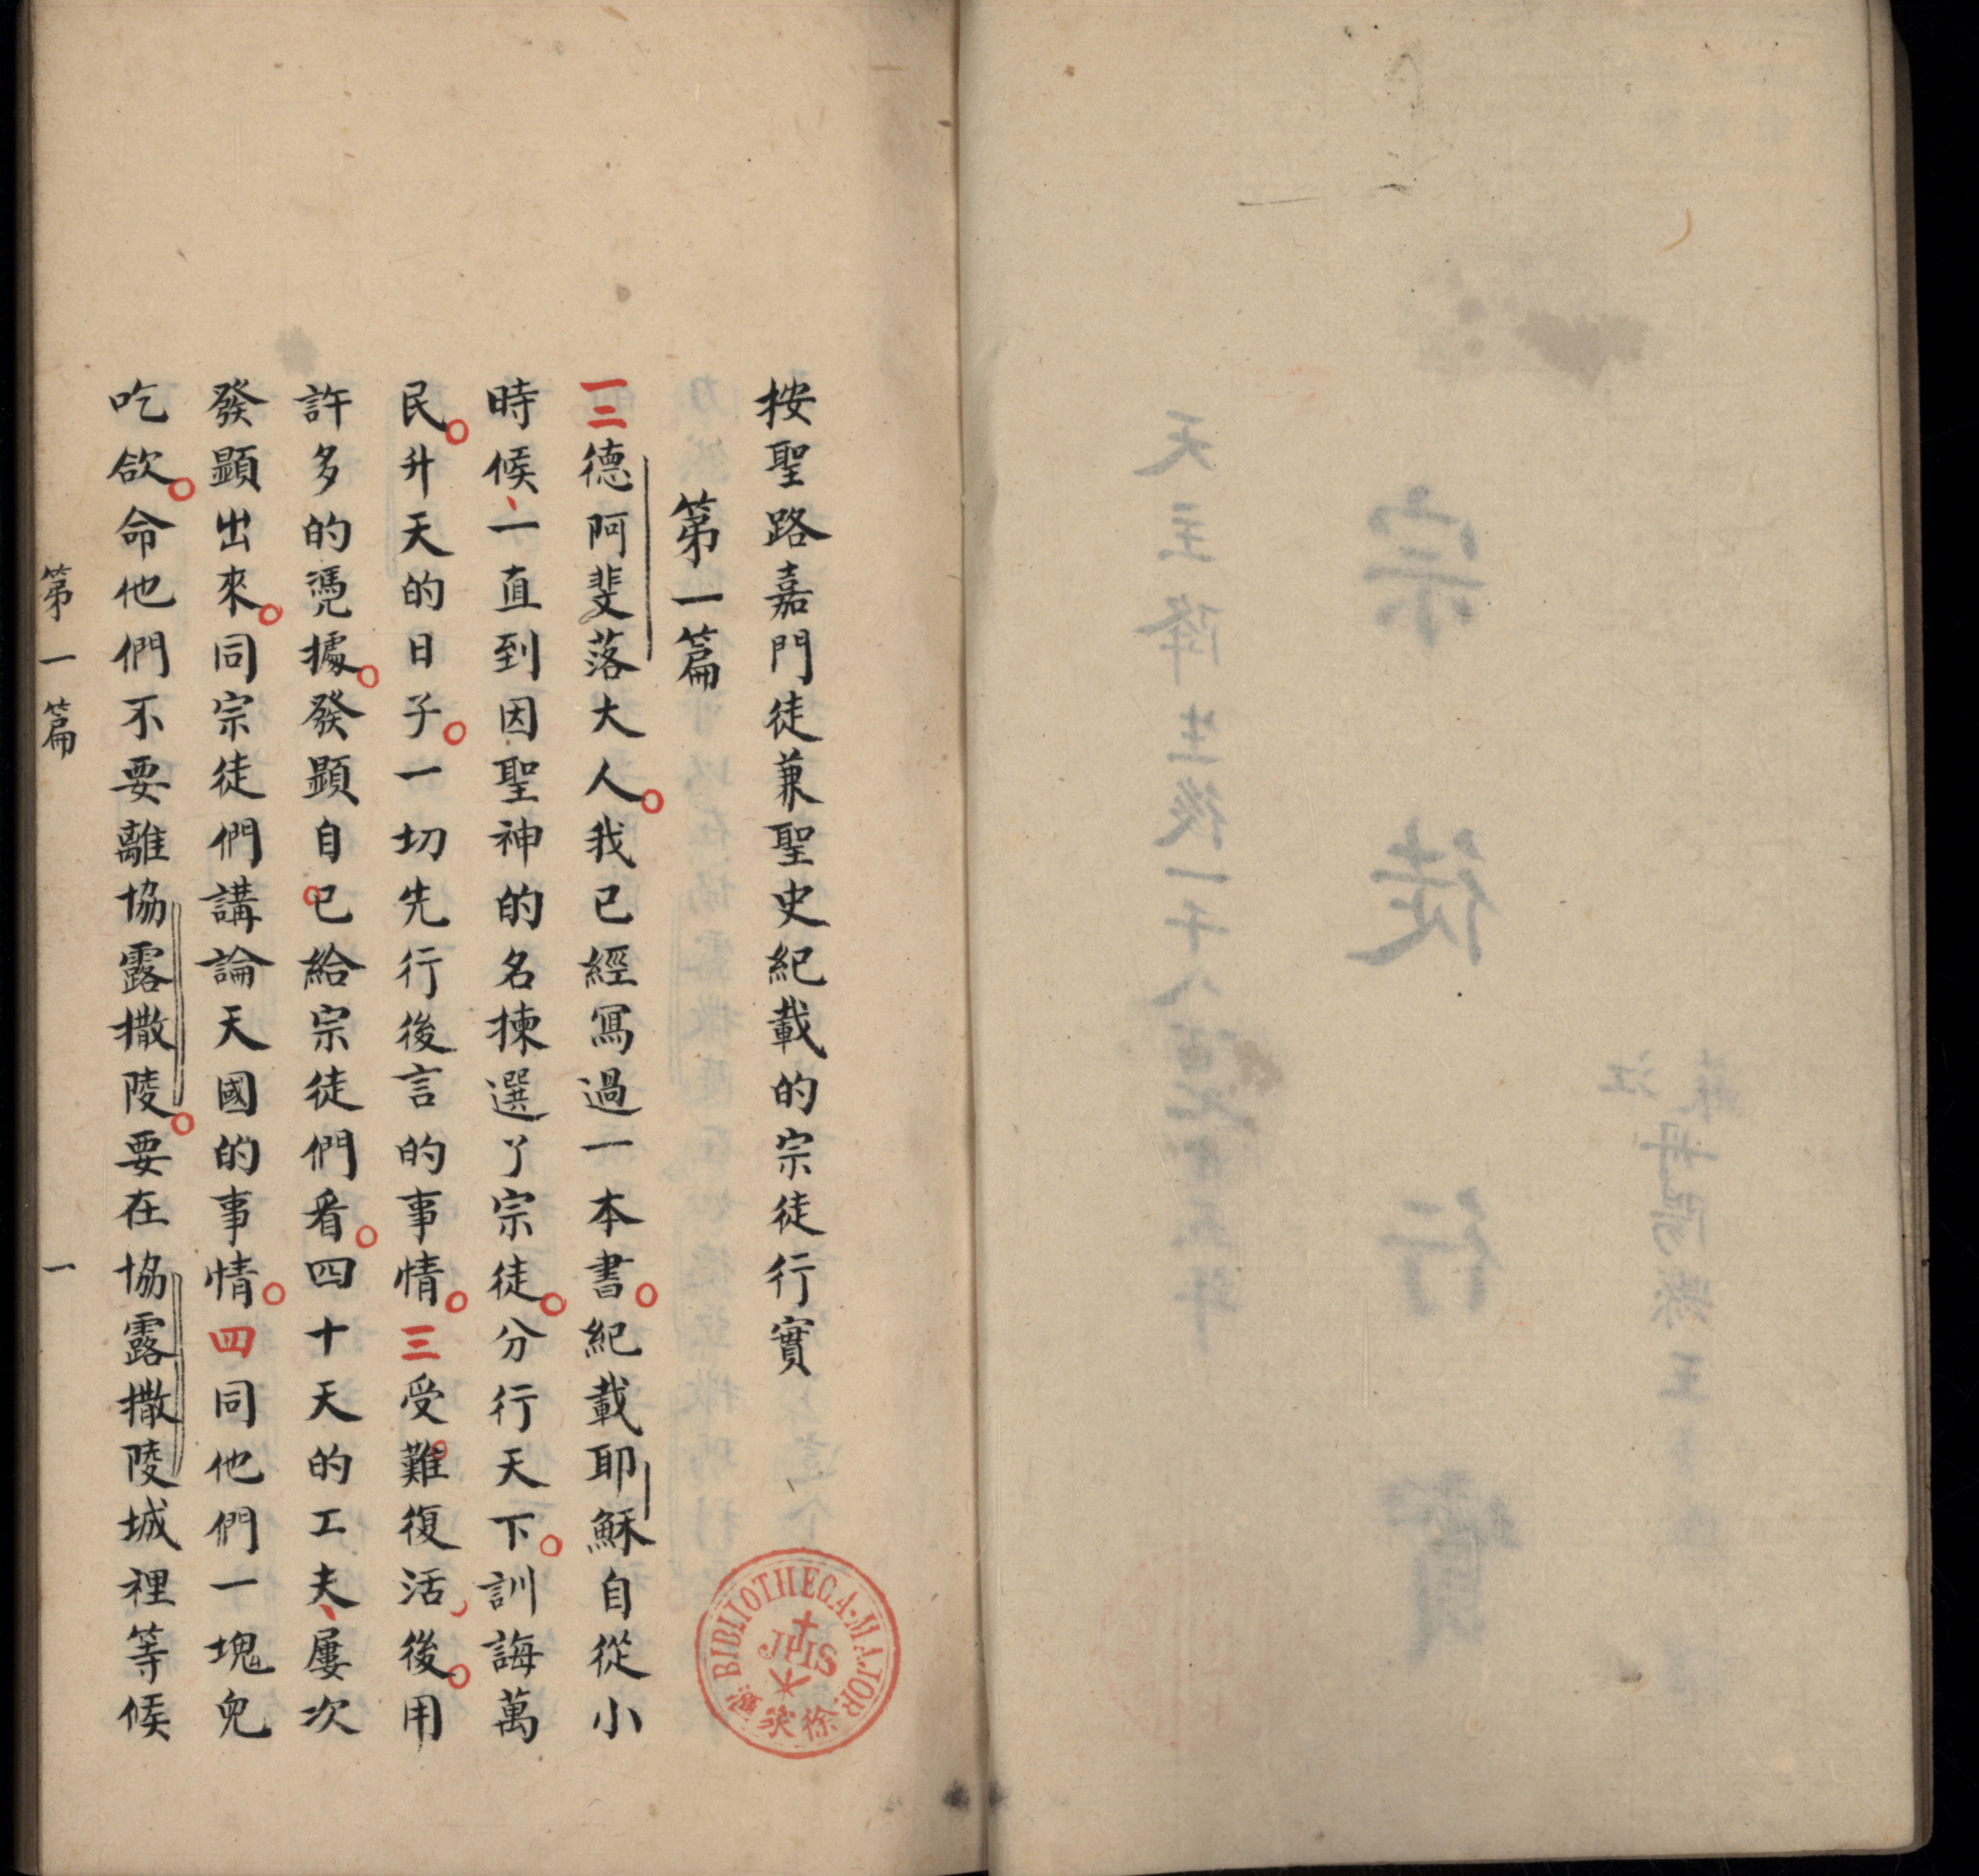 按聖路嘉門徒兼聖史紀載的宗徒行實
第一篇
一二德阿斐落大人。我已經寫過一本書。紀載耶穌自從小
時候、一直到因聖神的名揀選了宗徒。分行天下。訓誨萬
民。升天的日子。一切先行後言的事情。三受難。復活後。用
許多的憑據。發顯自己給宗徒們看。四十天的工夫、屢次
發顯出來。同宗徒們講論天國的事情。四同他們一塊兒
吃飲。命他們不要離協露撒陵。要在協露撒陵城裡等候
第一篇 一
BIBLIOTHECA·MAJOR
JHS
徐家滙
宗徒行實
天主降生後一千八百
丹陽縣王